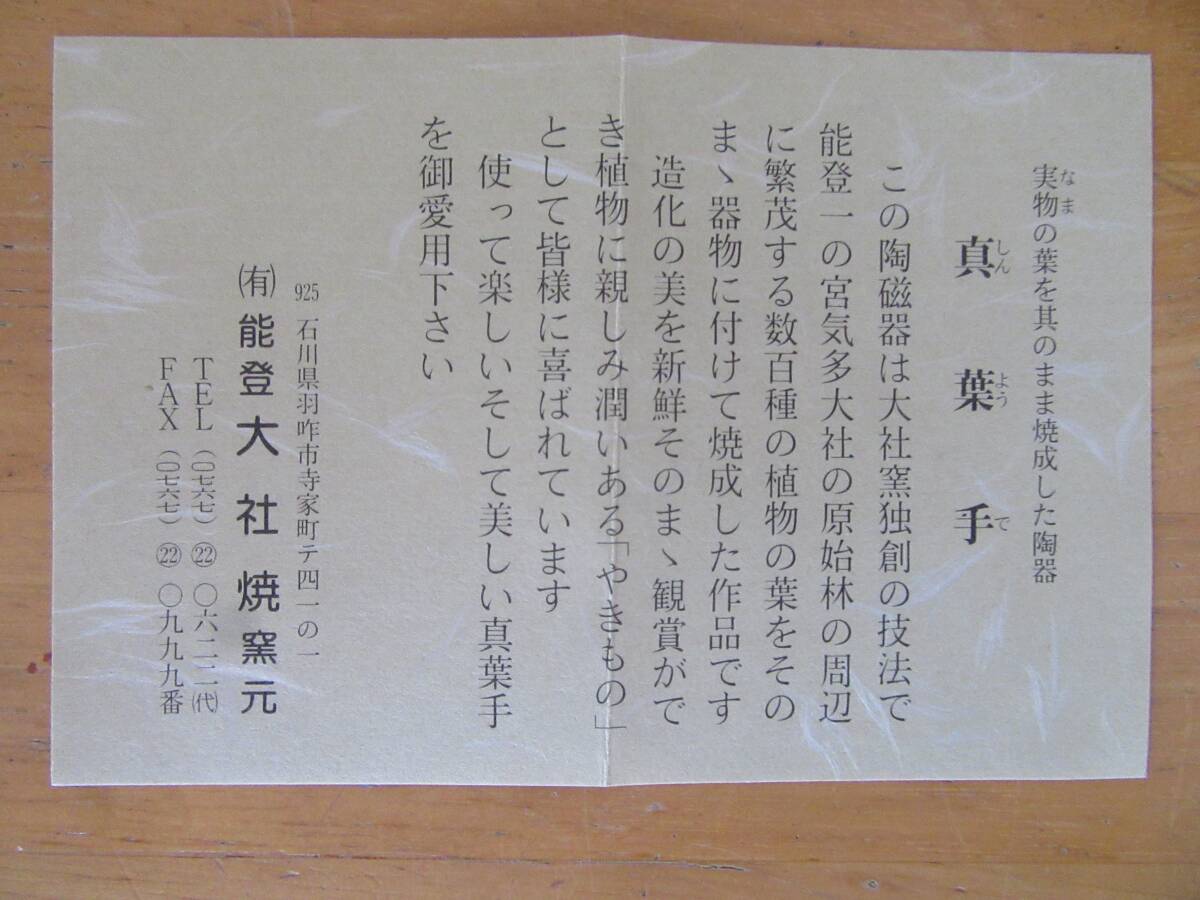 実物の葉を其のまま焼成した陶器
真葉手
この陶磁器は大社窯独創の技法で
能登一の宮気多大社の原始林の周辺
に繁茂する数百種の植物の葉をその
まゝ器物に付けて焼成した作品です
造化の美を新鮮そのまゝ観賞がで
き植物に親しみ潤いある「やきもの」
として皆様に喜ばれています
使って楽しいそして美しい真葉手
を御愛用下さい
925 石川県羽咋市寺家町テ四一の一
㈲能登大社焼窯元
TEL(〇七六七)㉒〇六二二㈹
FAX(〇七六七)㉒〇九九九番